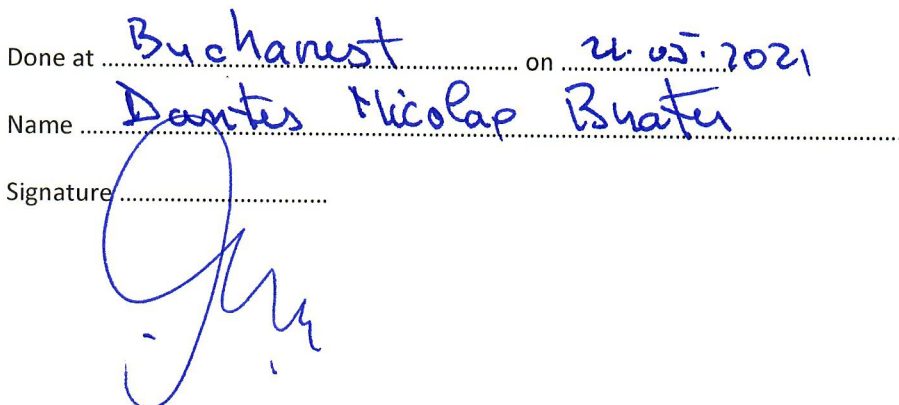 Done at Bucharest on 21.05.2021
Name Dantes Nicolae Bratu
Signature